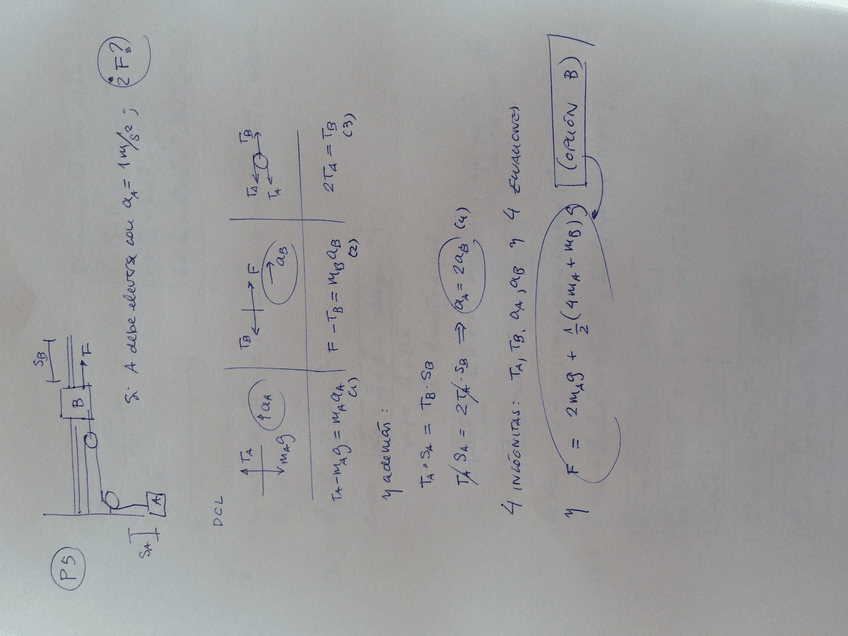 P5
S_A
A
B
S_B
F
Si A debe elevarse con a_A = 1 m/s² ; ¿F?
DCL
T_A
m_A g
↑ a_A
T_B
F
→ a_B
T_A
T_A
T_B
T_A - m_A g = m_A a_A
(1)
F - T_B = m_B a_B
(2)
2T_A = T_B
(3)
y además:
T_A · S_A = T_B · S_B
T_A S_A = 2T_A · S_B ⇒ a_A = 2a_B (4)
4 INCÓGNITAS: T_A, T_B, a_A, a_B y 4 ECUACIONES
y F = 2m_A g + 1/2 (4m_A + m_B)
(OPCIÓN B)